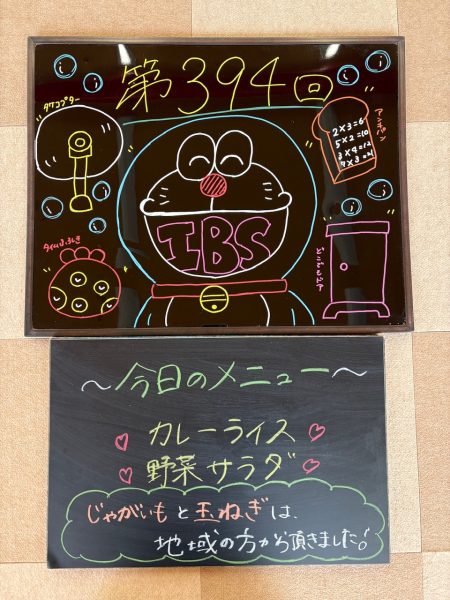 第394回
タケコプター
アンキパン
2×3=6
5×2=10
3×4=12
7×3=21
IBS
タイムふろしき
どこでもドア
～今日のメニュー～
カレーライス
野菜サラダ
じゃがいもと玉ねぎは、
地域の方から頂きました!